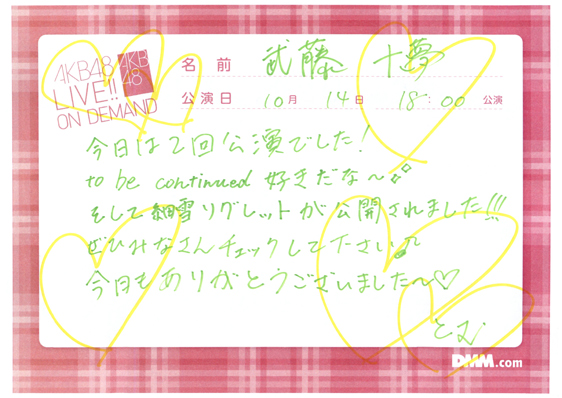 AKB48
LIVE!!
ON DEMAND
AKB
48
名前 武藤 十夢
公演日 10月 14日 18:00 公演
今日は2回公演でした!
to be continued 好きだな〜
そして細雪リグレットが公開されました!!!
ぜひみなさんチェックして下さい♫
今日もありがとうございました〜♡
とむ
DMM.com